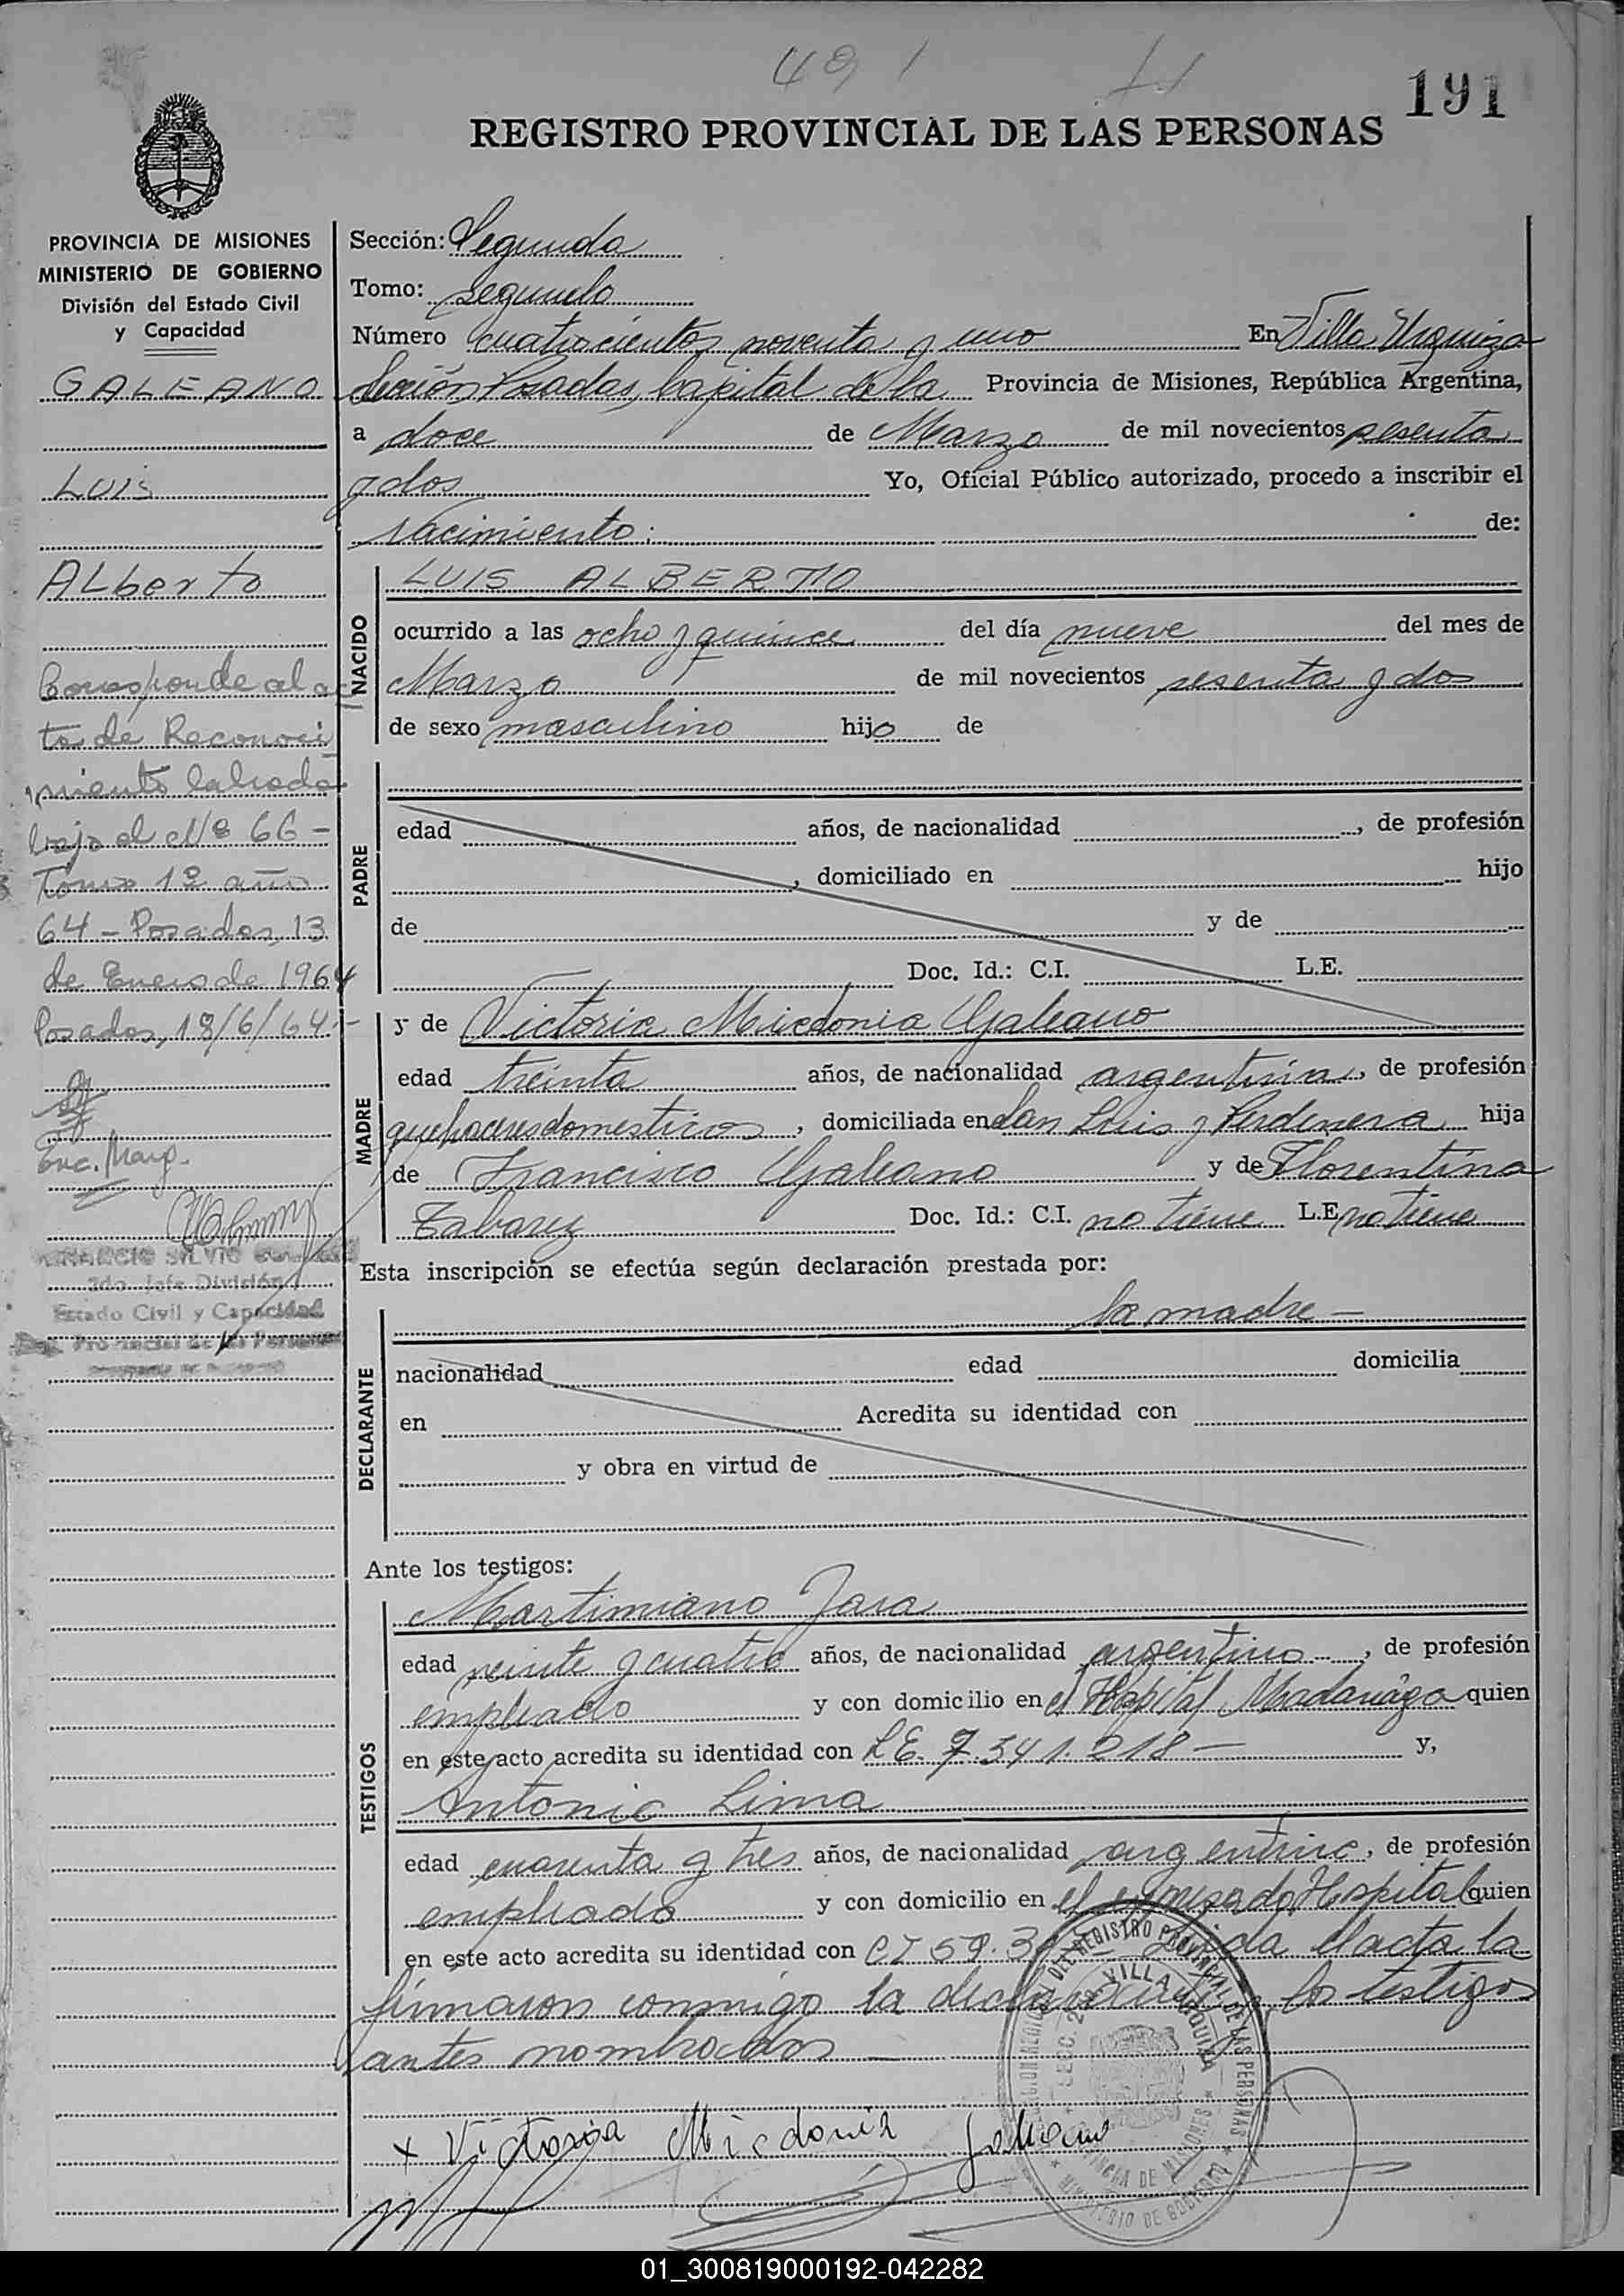 491
191
REGISTRO PROVINCIAL DE LAS PERSONAS
PROVINCIA DE MISIONES
MINISTERIO DE GOBIERNO
División del Estado Civil
y Capacidad
GALEANO
LUIS
ALberto
Corresponde al ac
ta de Reconoci
miento labrada
bajo el Nº 66 -
Tomo 1º año
64 - Posadas, 13
de Enero de 1964
Posadas, 18/6/64 -
Enc. Marg.
SILVIO
2do. Jefe División
Estado Civil y Capacidad
Provincial de las Personas
Sección: Segunda
Tomo: segundo
Número cuatrocientos noventa y uno En Villa Urquiza
Sección Posadas, Capital de la Provincia de Misiones, República Argentina,
a doce de Marzo de mil novecientos sesenta
y dos Yo, Oficial Público autorizado, procedo a inscribir el
Nacimiento: de:
NACIDO
LUIS ALBERTO
ocurrido a las ocho y quince del día nueve del mes de
Marzo de mil novecientos sesenta y dos
de sexo masculino hijo de
PADRE
edad años, de nacionalidad , de profesión
, domiciliado en hijo
de y de
Doc. Id.: C.I. L.E.
MADRE
y de Victoria Micedonia Galeano
edad treinta años, de nacionalidad argentina, de profesión
quehaceres domesticos, domiciliada en San Luis y Perdenera hija
de Francisco Galeano y de Florentina
Tabarez Doc. Id.: C.I. no tiene L.E. no tiene
Esta inscripción se efectúa según declaración prestada por:
DECLARANTE
la madre -
nacionalidad edad domicilia
en Acredita su identidad con
y obra en virtud de
Ante los testigos:
TESTIGOS
Martimiano Jara
edad veinte y cuatro años, de nacionalidad argentino, de profesión
empleado y con domicilio en el Hospital Madariaga quien
en este acto acredita su identidad con L.E. 7.341.218 - y,
Antonio Lima
edad cuarenta y tres años, de nacionalidad argentino, de profesión
empleado y con domicilio en el expresado Hospital quien
en este acto acredita su identidad con CI 59.3 Leida el acta la
firmaron conmigo la declarante y los testigos
antes nombrados -
DEL REGISTRO PROVINCIAL DE LAS PERSONAS
SECC. 2 VILLA URQUIZA
PROVINCIA DE MISIONES
MINISTERIO DE GOBIERNO
+ Victoria Micdonia Galeano
01_300819000192-042282